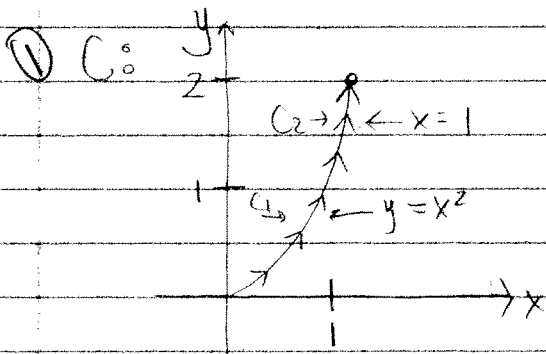 ① C: y
2
C₂→ ← x = 1
1
C₁ → ← y = x²
x
1